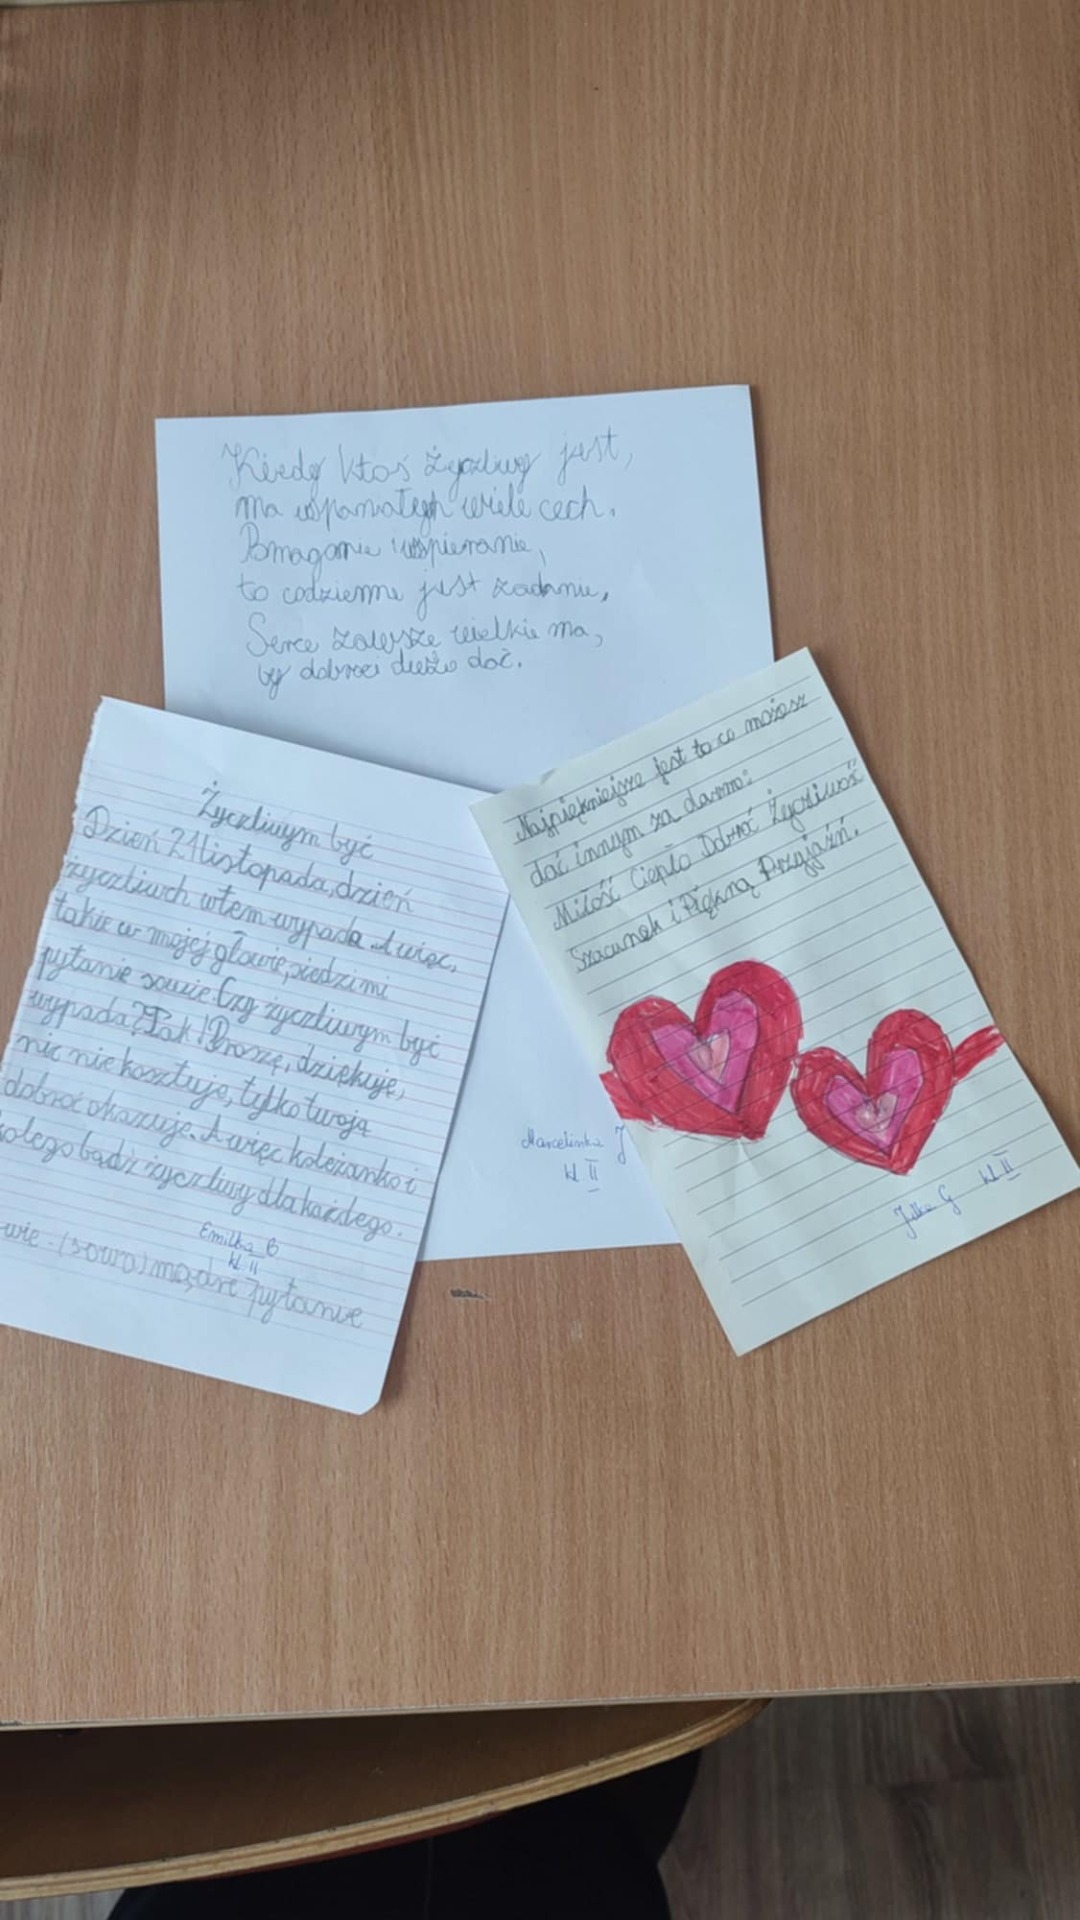 Kiedy ktoś życzliwy jest,
ma wspaniałych wiele cech.
Pomaganie i wspieranie,
to codzienne jest zadanie,
Serce zawsze wielkie ma,
by dobroci dużo dać.
Marcelinka J
kl II
Życzliwym być
Dzień 21 listopada, dzień
życzliwch wtem wypada. A więc,
takie w mojej głowie, siedzi mi
pytanie sowie. Czy życzliwym być
wypada? Tak! Proszę, dziękuję,
nic nie kosztuje, tylko twoją
dobroć okazuje. A więc koleżanko i
olego bądź życzliwy dla każdego.
Emilka B
kl II
wie - (sowa) mądre pytanie
Najpiękniejsze jest to co możesz
dać innym za darmo:
Miłość Ciepło Dobroć Życzliwość
Szacunek i Piękną Przyjaźń.
Julka G kl II